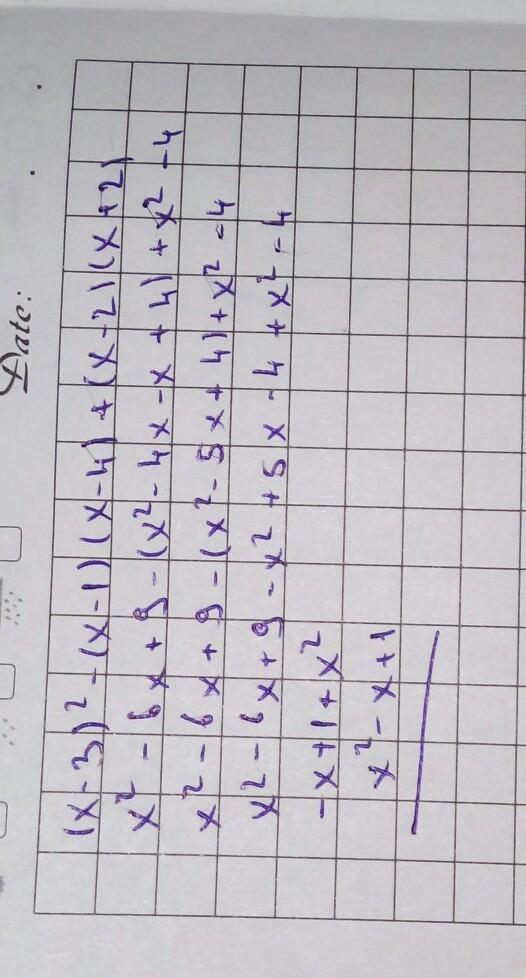 Date:
(x-3)² - (x-1)(x-4) + (x-2)(x+2)
x² - 6x + 9 - (x² - 4x - x + 4) + x² - 4
x² - 6x + 9 - (x² - 5x + 4) + x² - 4
x² - 6x + 9 - x² + 5x - 4 + x² - 4
-x + 1 + x²
x² - x + 1